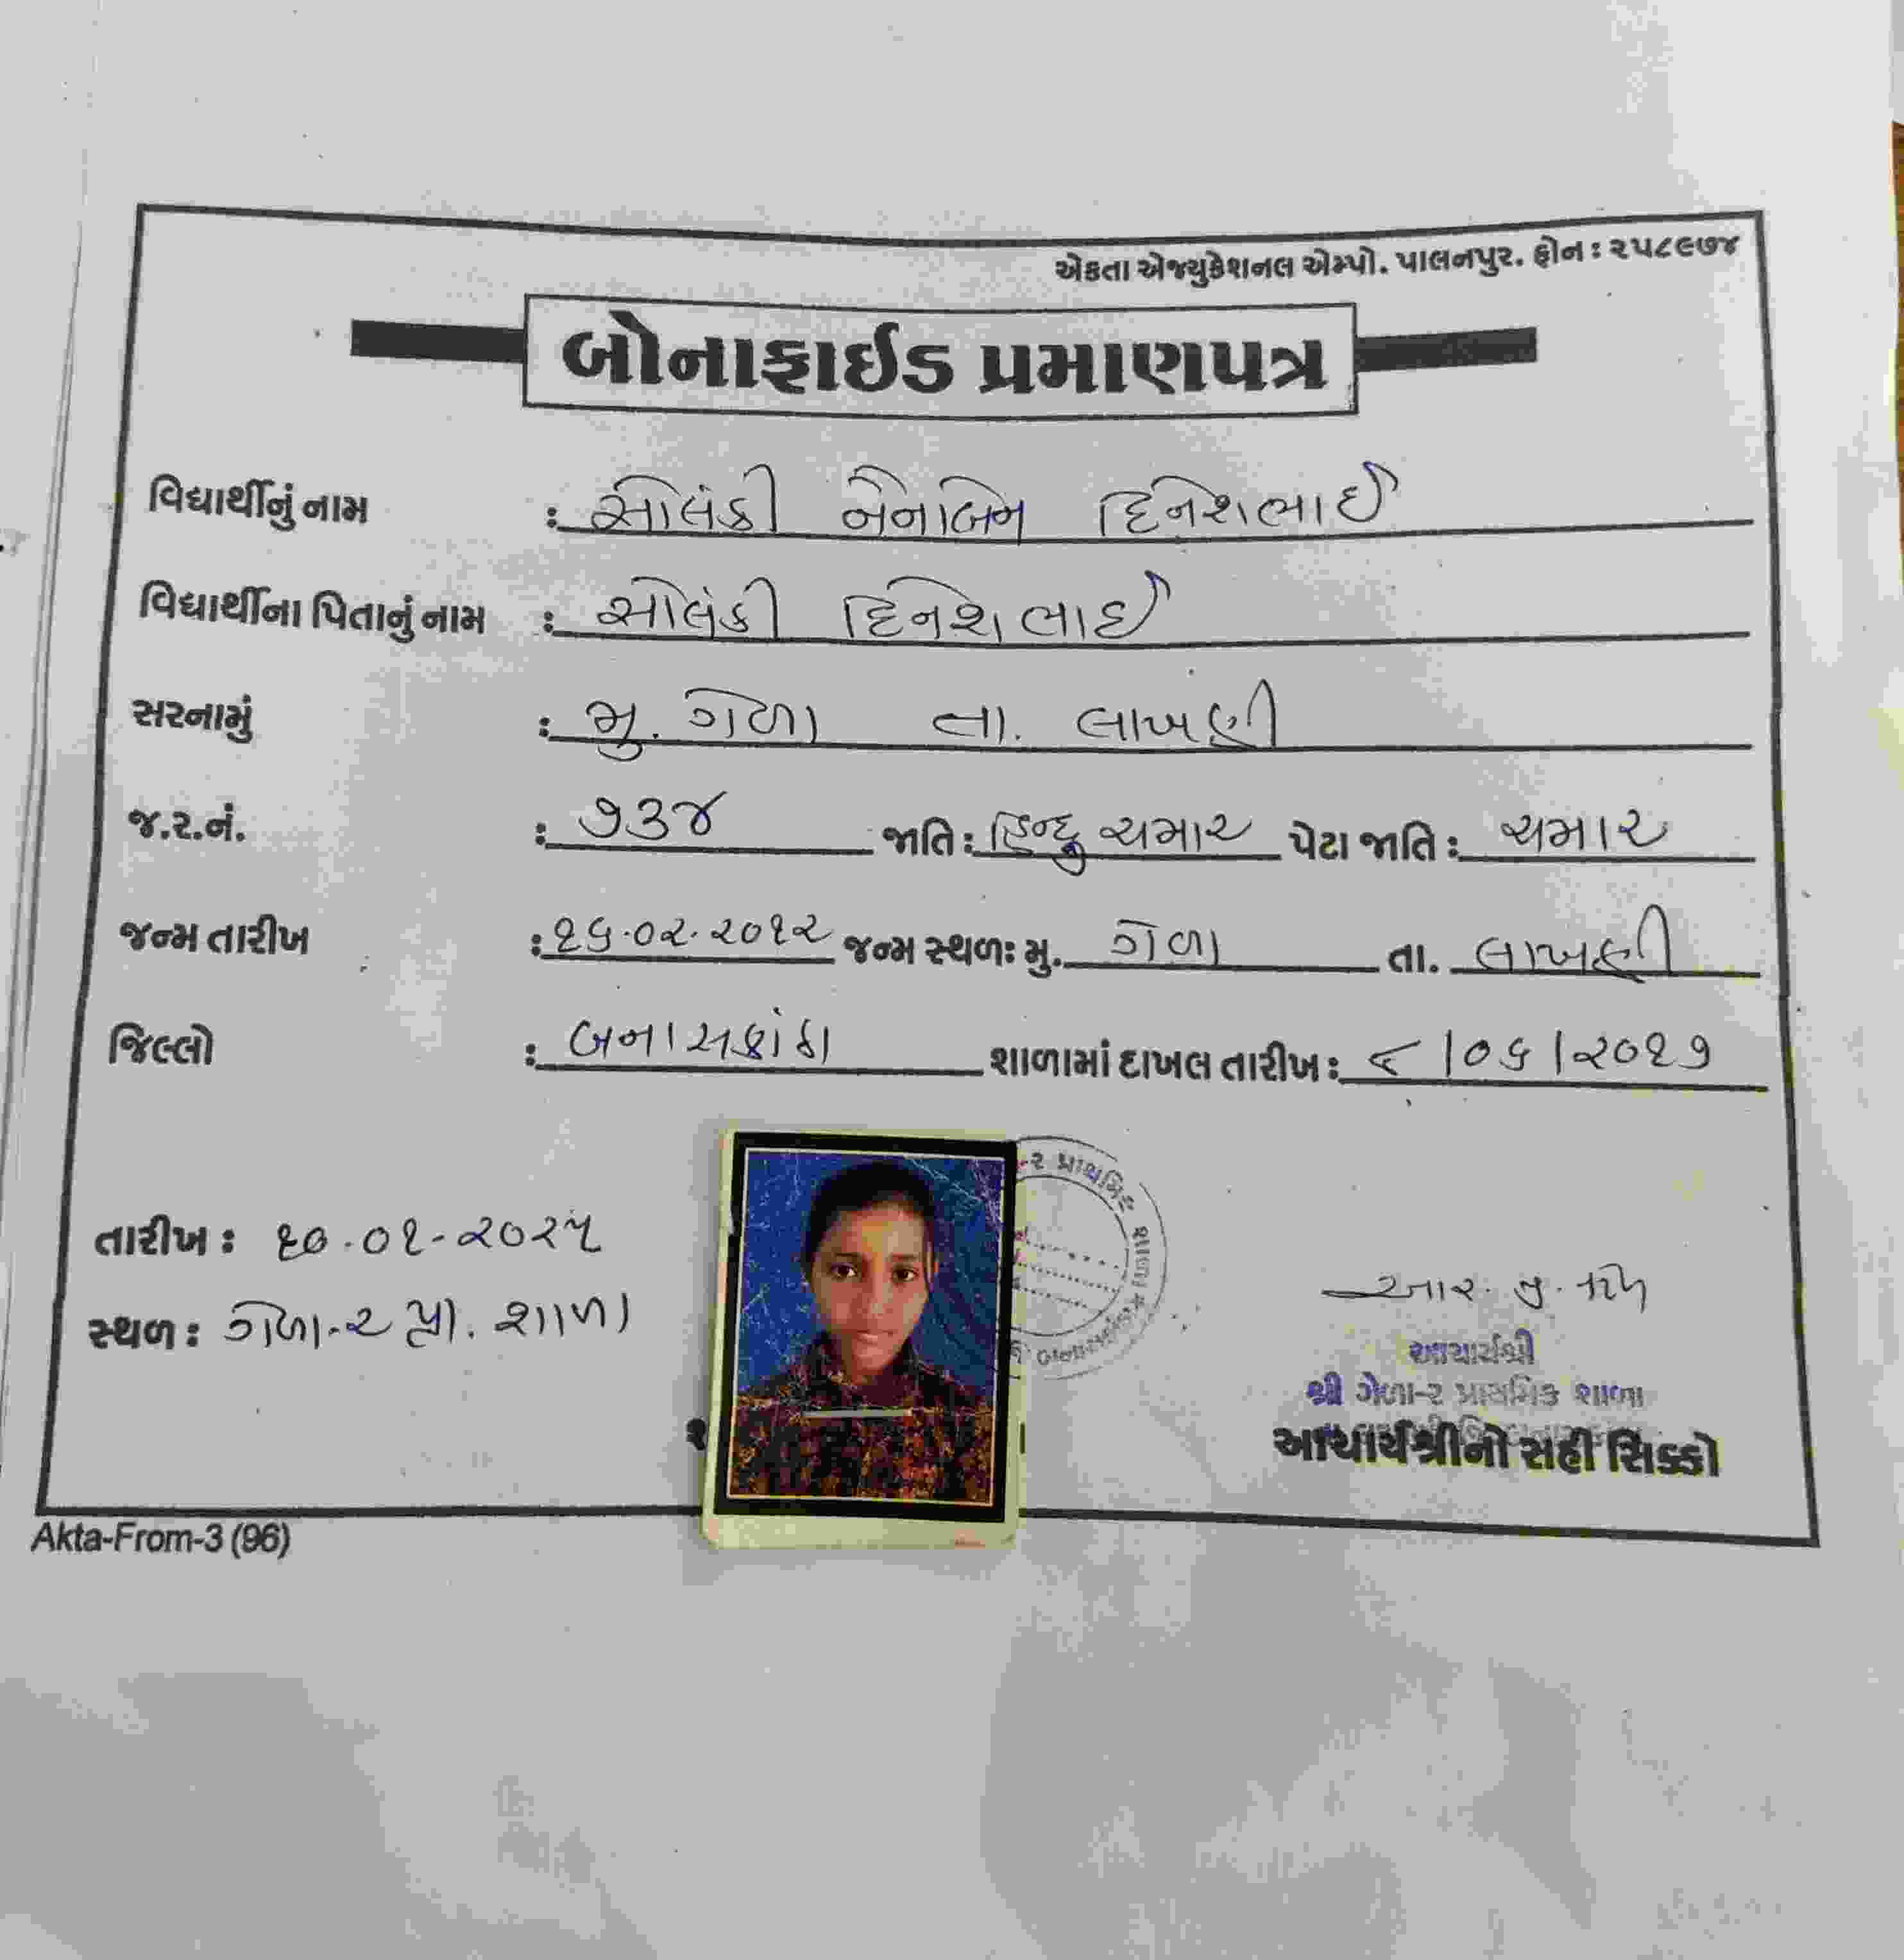 એકતા એજ્યુકેશનલ એમ્પો. પાલનપુર. ફોન : ૨૫૮૯૭૪
બોનાફાઈડ પ્રમાણપત્ર
વિદ્યાર્થીનું નામ : સોલંકી નેનાબેન દિનેશભાઈ
વિદ્યાર્થીના પિતાનું નામ : સોલંકી દિનેશભાઈ
સરનામું : મુ. ગેળા તા. લાખણી
જ.ર.નં. : ૭૩૪ જાતિ : હિન્દુ ચમાર પેટા જાતિ : ચમાર
જન્મ તારીખ : ૧૬.૦૨.૨૦૧૨ જન્મ સ્થળઃ મુ. ગેળા તા. લાખણી
જિલ્લો : બનાસકાંઠા શાળામાં દાખલ તારીખ : ૯/૦૬/૨૦૧૭
-૨ પ્રાથમિક શાળા
તારીખ : ૧૦-૦૧-૨૦૨૫
સ્થળ : ગેળા-૨ પ્રા. શાળા
આચાર્યશ્રી
શ્રી ગેળા-૨ પ્રાથમિક શાળા
આચાર્યશ્રીનો સહી સિક્કો
Akta-From-3 (96)